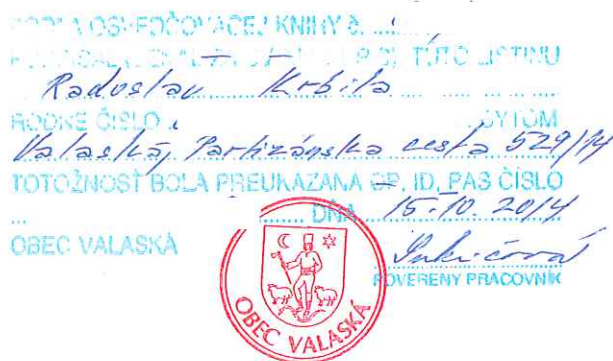 KNIHY Č.
TÚTO LISTINU
Radoslav Krbila
RODNÉ ČÍSLO BYTOM
Valaská, Partizánska cesta 529/14
TOTOŽNOSŤ BOLA PREUKÁZANÁ OP, ID, PAS ČÍSLO
DŇA 15.10.2014
OBEC VALASKÁ
POVERENÝ PRACOVNÍK
OBEC VALASKÁ